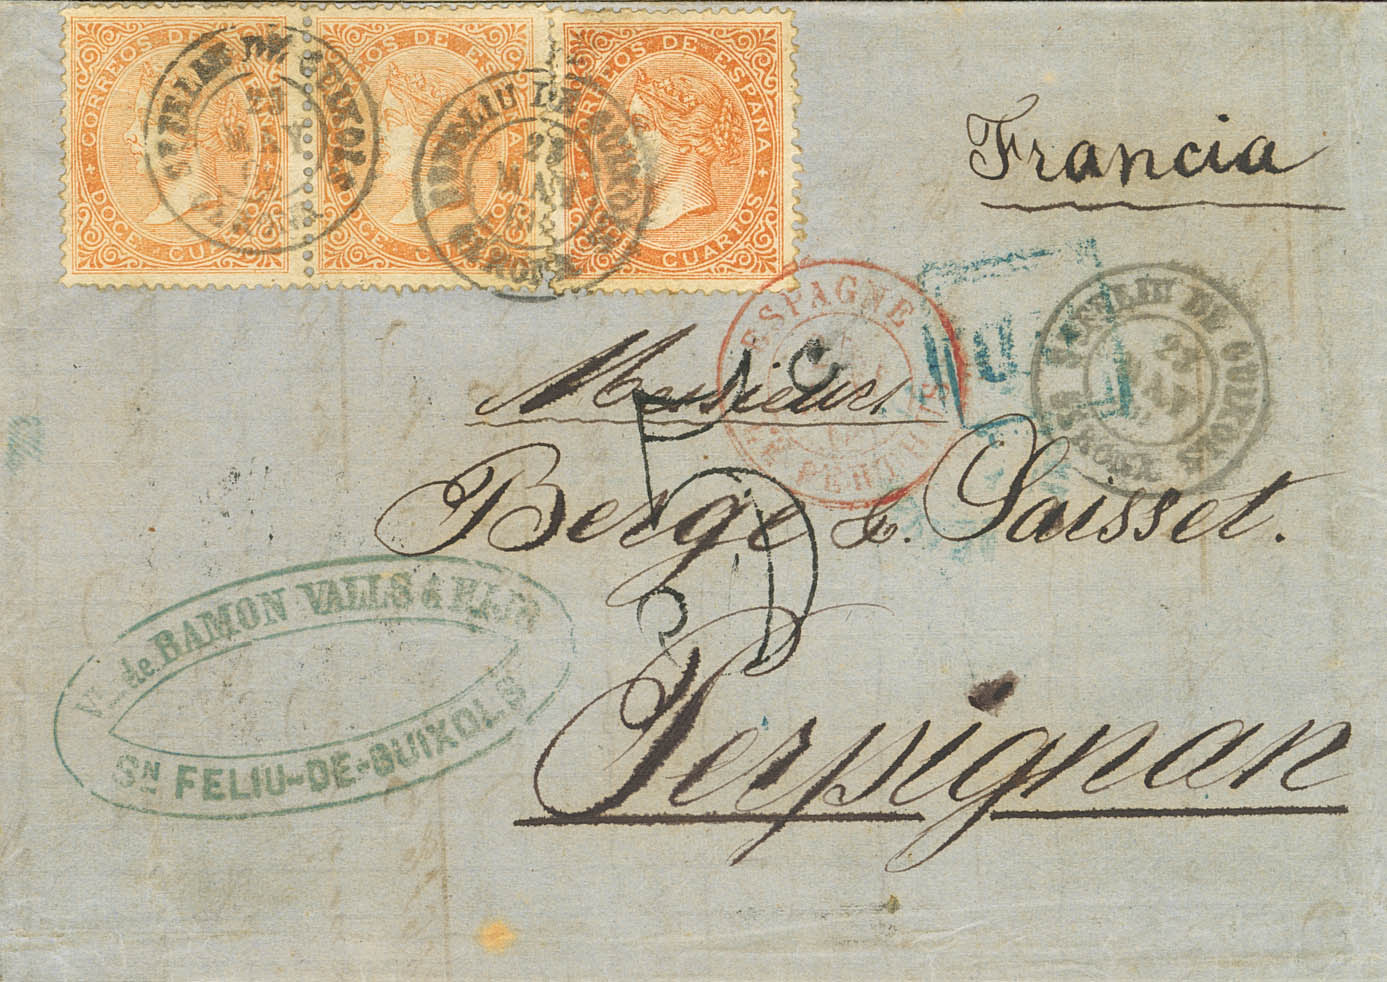 CORREOS DE ESPAÑA
DOCE CUARTOS
CORREOS DE ES
DOCE CUARTOS
CORREOS DE ESPAÑA
CUARTOS
S. FELIU DE GUIXOLS
FELIU DE GUIXOLS
MAR
GERONA
Francia
ESPAGNE
LE PERTHUS
S. FELIU DE GUIXOLS
MAR
GERONA
Messieurs
Berge & Saisset.
Perpignan
Vda de RAMON VALLS & HIJO
Sn FELIU-DE-GUIXOLS